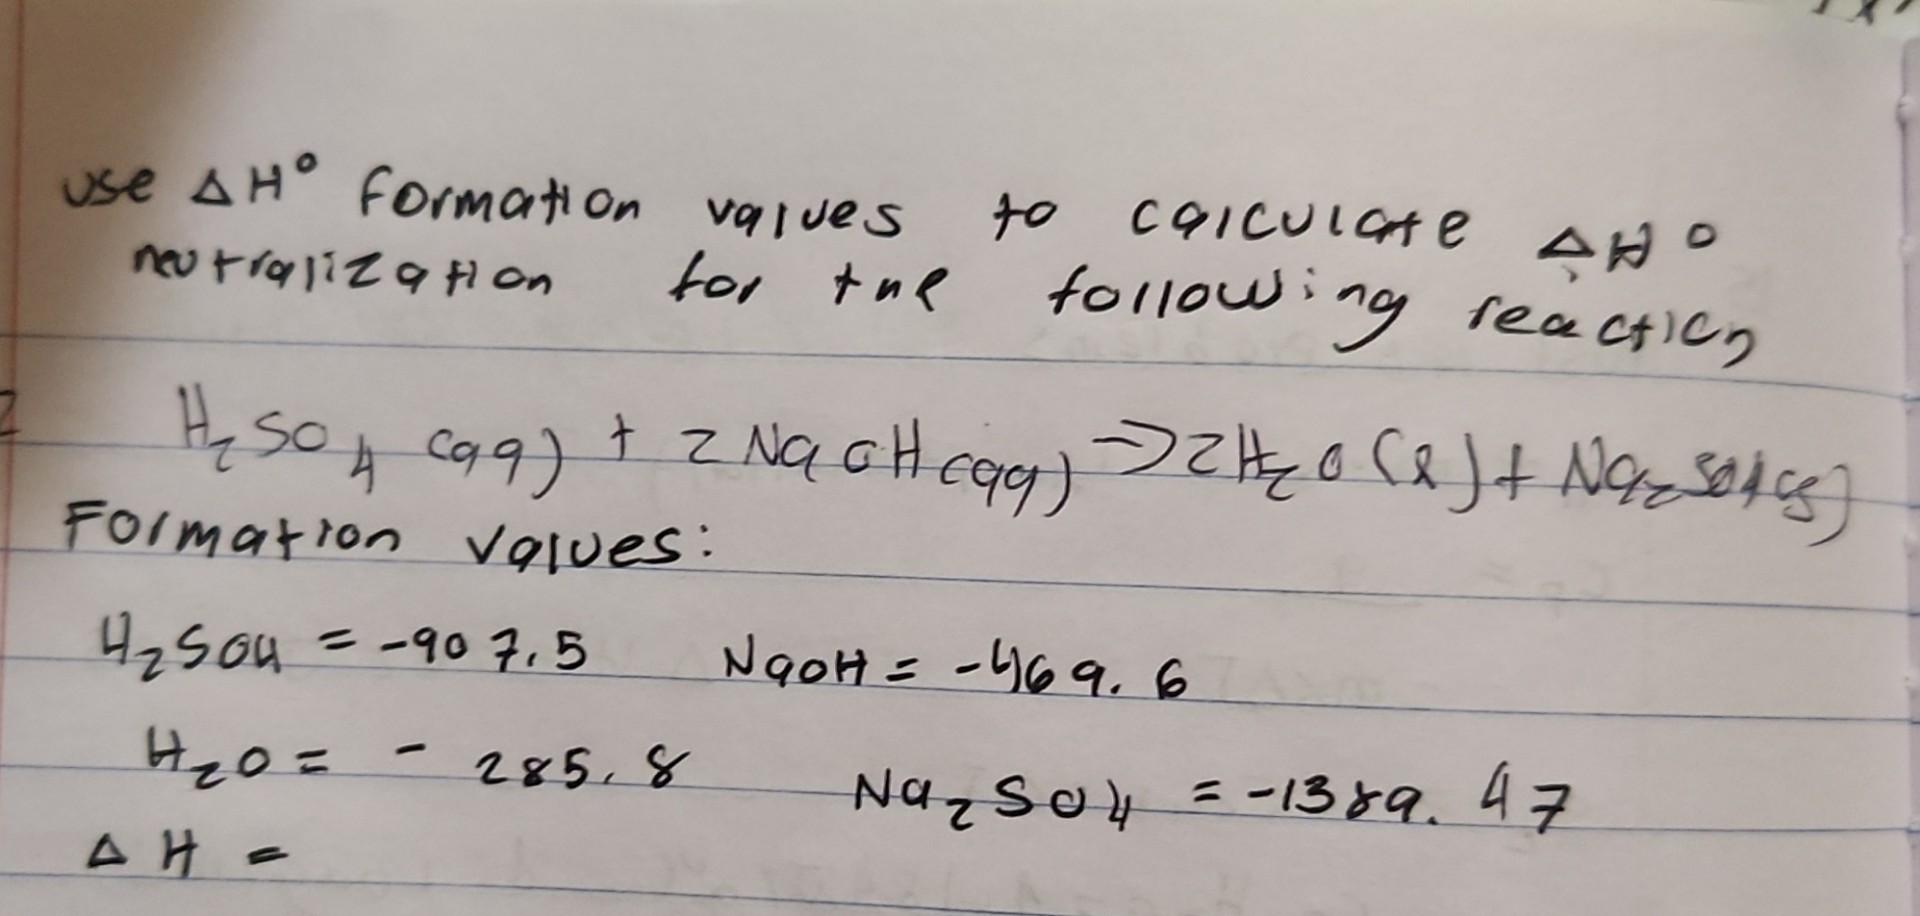 use ΔH° formation values to calculate ΔH°
neutralization for the following reaction
H₂SO₄ (aq) + 2NaOH (aq) → 2H₂O (l) + Na₂SO₄ (s)
Formation values:
H₂SO4 = -907.5 NaOH = -469.6
H₂O = - 285.8 Na₂SO₄ = -1389.47
ΔH =